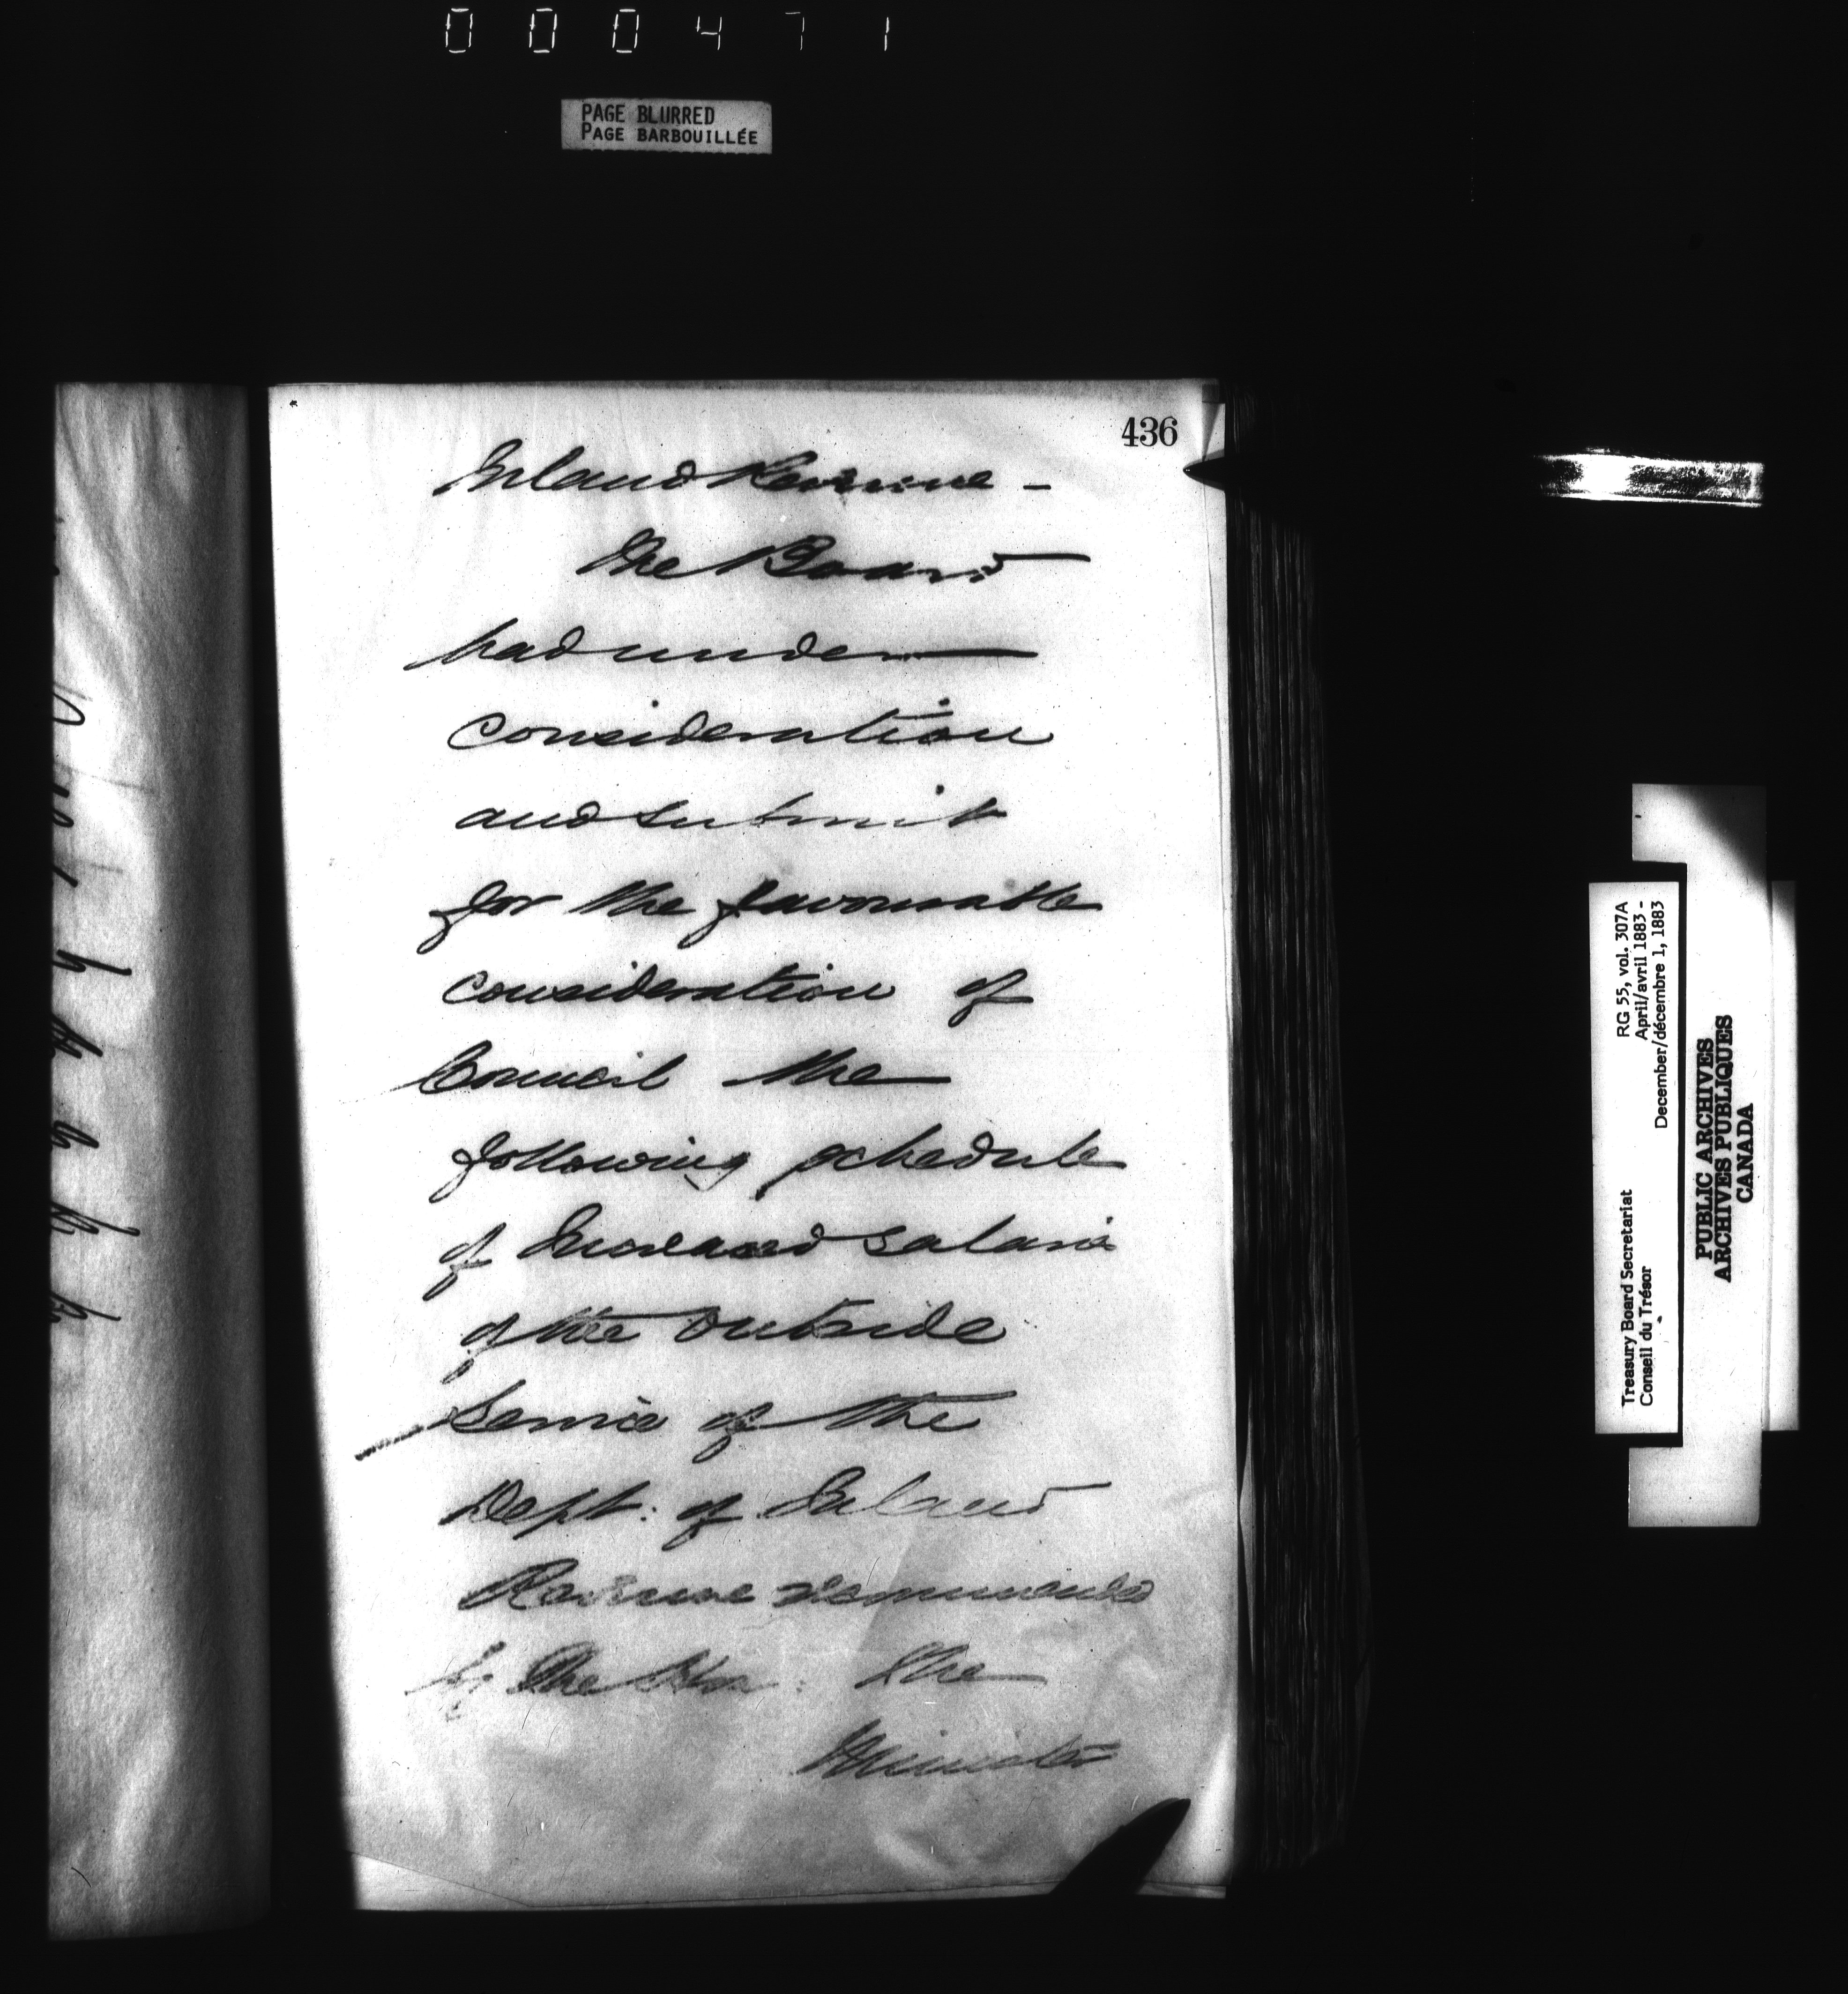 000471
PAGE BLURRED
PAGE BARBOUILLÉE
436
Inland Revenue -
The Board
had under
consideration
and submit
for the favourable
consideration of
Council the
following schedule
of Increased salaries
of the outside
Service of the
Dept: of Inland
Revenue recommended
by The Hon: the
Minister
Treasury Board Secretariat RG 55, vol. 307A
Conseil du Trésor April/avril 1883 -
December/décembre 1, 1883
PUBLIC ARCHIVES
ARCHIVES PUBLIQUES
CANADA